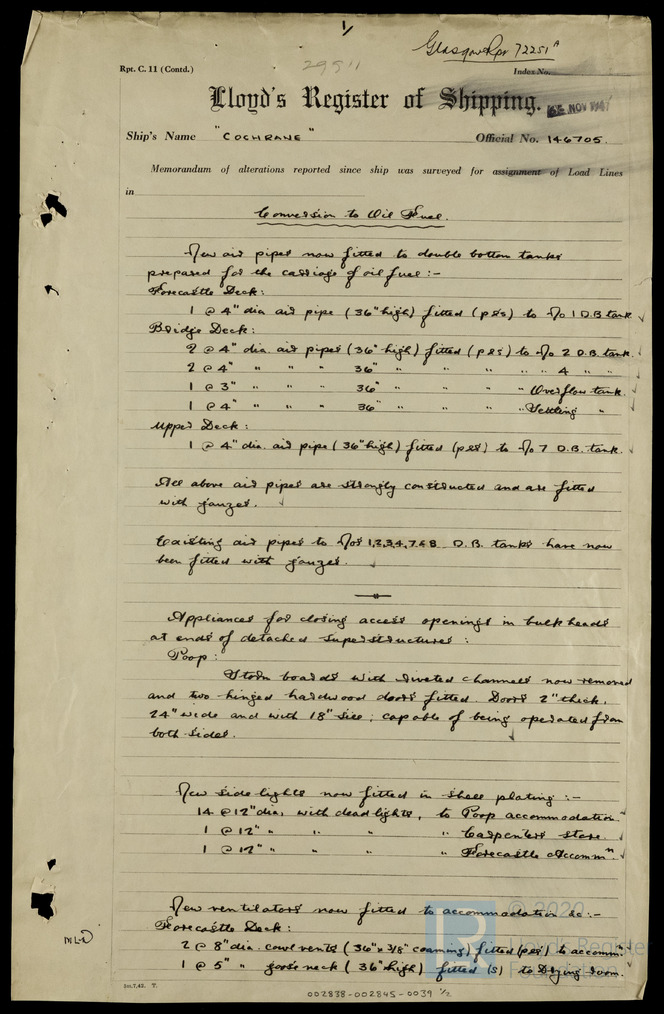 1/
Glasgow Rpt 72251ᴬ
Rpt. C. 11 (Contd.)
29511
Index No.
Lloyd's Register of Shipping.
NOV 1947
Ship's Name "COCHRANE" Official No. 146705.
Memorandum of alterations reported since ship was surveyed for assignment of Load Lines
in
Conversion to Oil Fuel.
New air pipes now fitted to double bottom tanks
prepared for the carriage of oil fuel :-
Forecastle Deck:
1 @ 4" dia air pipe (36" high) fitted (p&s) to No 1 D.B. tank ✓
Bridge Deck:
2 @ 4" dia. air pipes (36" high) fitted (p&s) to No 2 D.B. tank. ✓
2 @ 4" " " " 36" " " " " 4 " " ✓
1 @ 3" " " " 36" " " " " Overflow tank. ✓
1 @ 4" " " " 36" " " " " Settling " ✓
Upper Deck:
1 @ 4" dia. air pipe (36" high) fitted (p&s) to No 7 D.B. tank. ✓
All above air pipes are strongly constructed and are fitted
with gauzes. ✓
Existing air pipes to Nos 1,2,3,4,7,& 8 D.B. tanks have now
been fitted with gauzes. ✓
Appliances for closing access openings in bulkheads
at ends of detached superstructures :
Poop:
Storm boards with riveted channels now removed
and two hinged hardwood doors fitted. Doors 2" thick,
24" wide and with 18" sill; capable of being operated from
both sides. ✓
New side lights now fitted in shell plating :-
14 @ 12" dia, with deadlights, to Poop accommodation ✓
1 @ 12" " " " " Carpenters store. ✓
1 @ 12" " " " " Forecastle Accommⁿ. ✓
New ventilators now fitted to accommodation &c :-
Forecastle Deck:
2 @ 8" dia. cowl vents (36" x 3/8" coaming) fitted (p&s) to accommⁿ. ✓
1 @ 5" " gooseneck (36" high) fitted (s) to Drying room.
© 2020
Lloyd's Register
Foundation
LR
002838-002845-0039 1/2